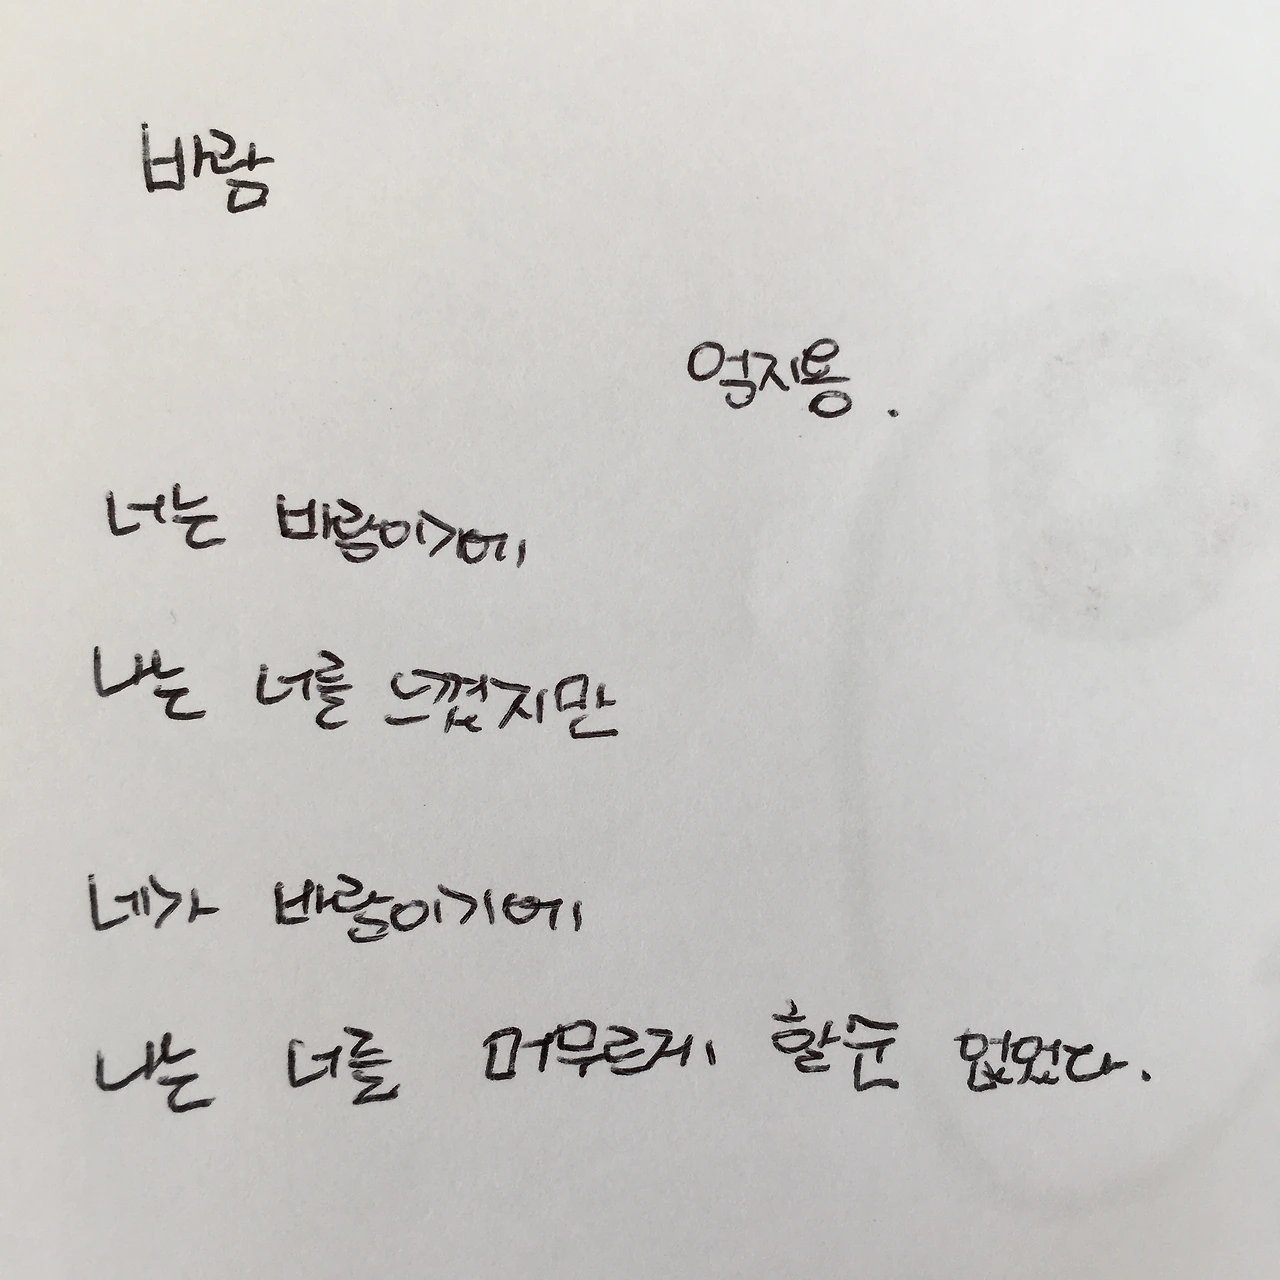 바람
엄지용.
너는 바람이기에
나는 너를 느꼈지만
네가 바람이기에
나는 너를 머무르게 할순 없었다.